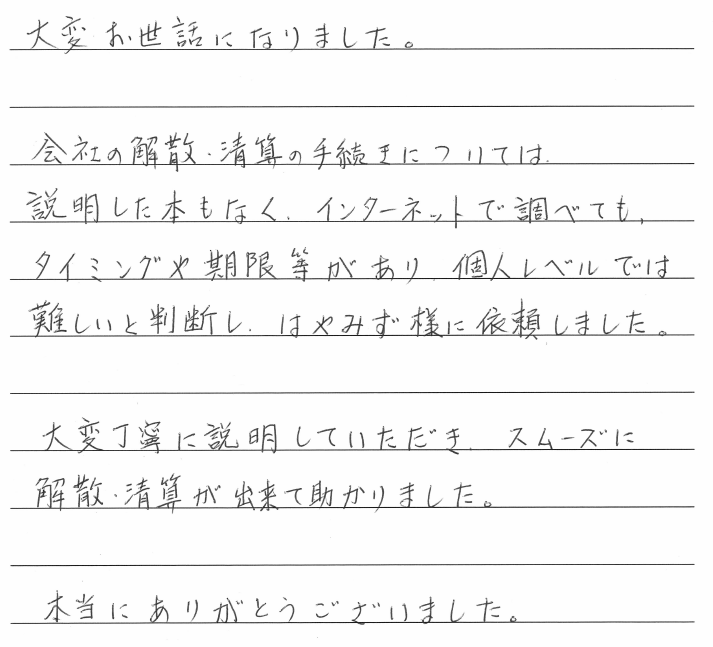 大変お世話になりました。
会社の解散・清算の手続きについては、
説明した本もなく、インターネットで調べても、
タイミングや期限等があり、個人レベルでは
難しいと判断し、はやみず様に依頼しました。
大変丁寧に説明していただき、スムーズに
解散・清算が出来て助かりました。
本当にありがとうございました。